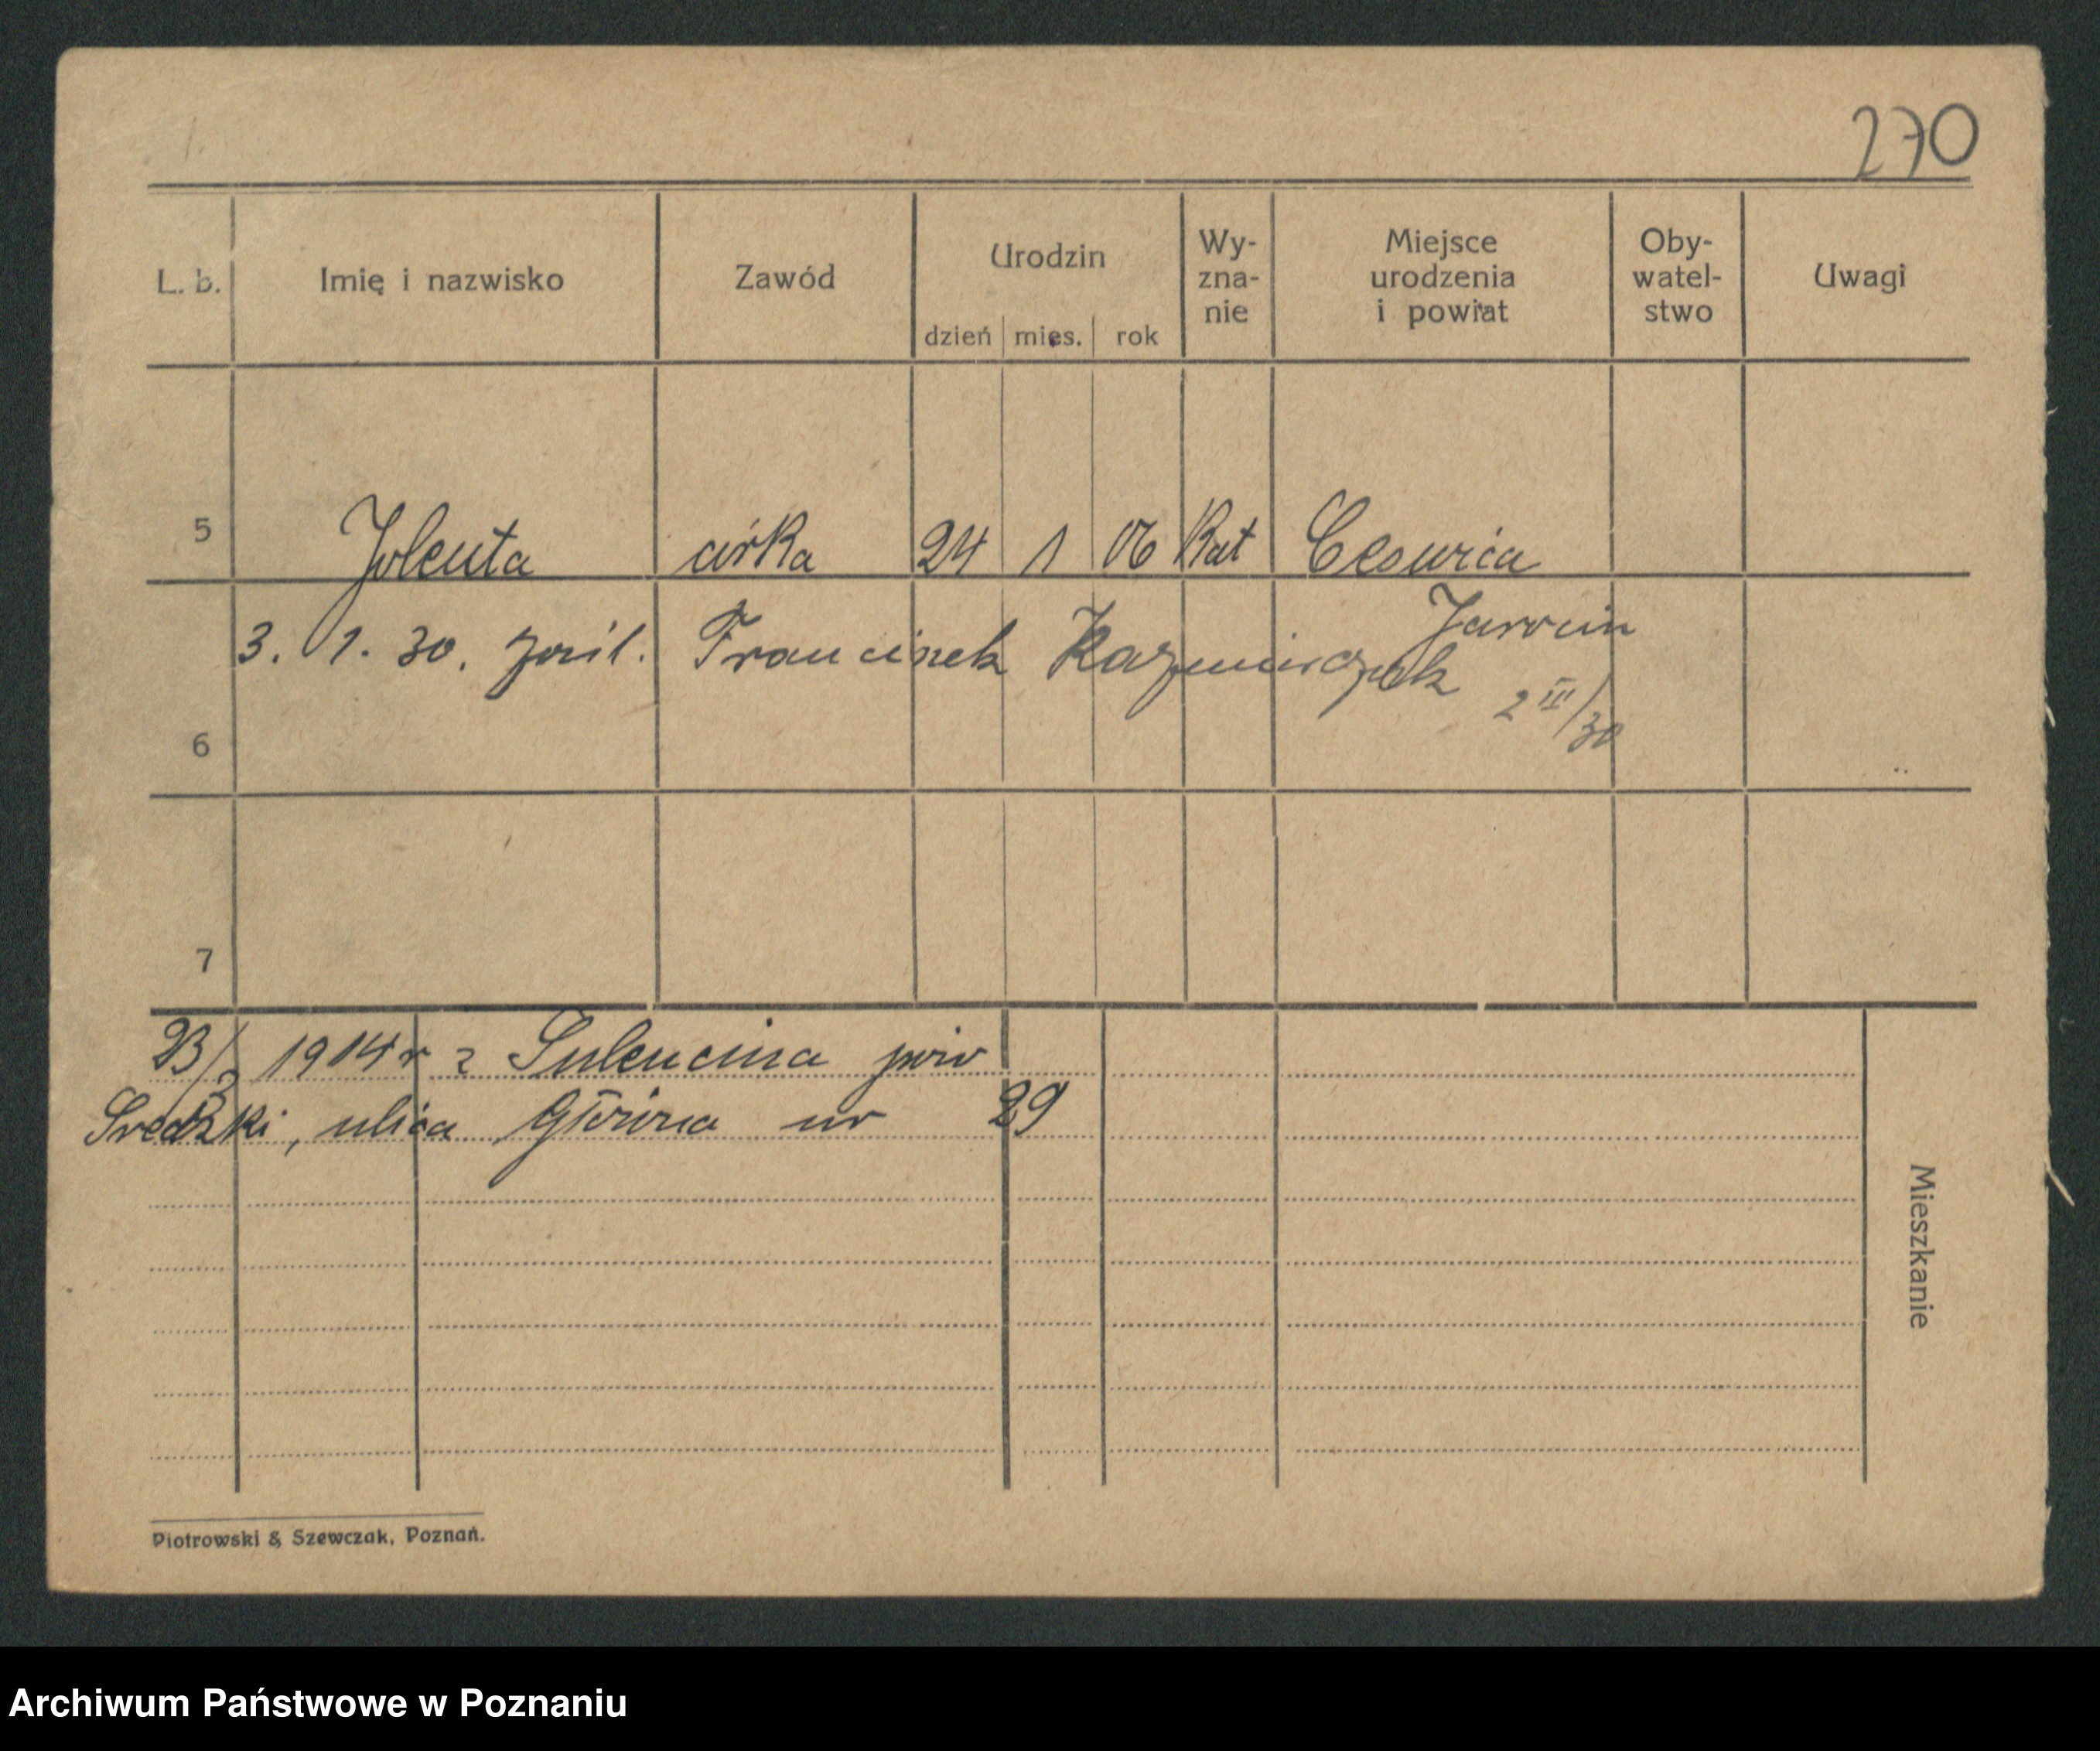 270
L. b. Imię i nazwisko Zawód Urodzin Wy- Miejsce Oby- Uwagi
zna- urodzenia watel-
nie i powiat stwo
dzień mies. rok
5 Jolenta córka 24 1 06 Kat
Jarocin
3. 1. 30. Franciszek Kazmierczak
2 III/30
6
7
23/3 1914 r z Sulencina pow
Sredzki, ulica Główna nr 29
Mieszkanie
Piotrowski & Szewczak, Poznań.
Archiwum Państwowe w Poznaniu